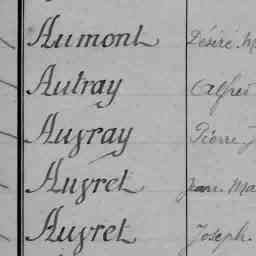 Aumont Désiré
Autray Alfred
Auvray Pierre
Auvret Jean Ma
Auvret Joseph